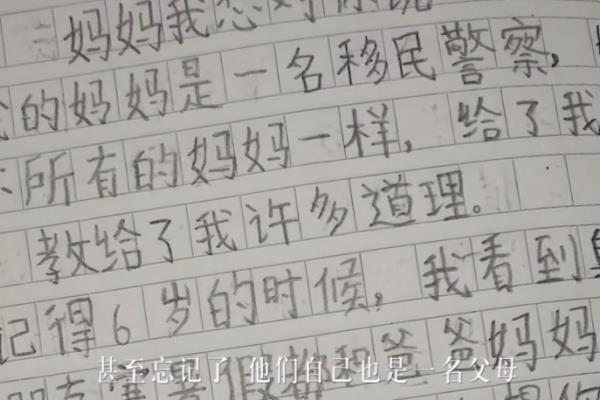 妈妈我想对你说
的妈妈是一名移民警察，
所有的妈妈一样，给了我
教给了我许多道理。
记得6岁的时候，我看到
爸爸妈妈
甚至忘记了 他们自己也是一名父母